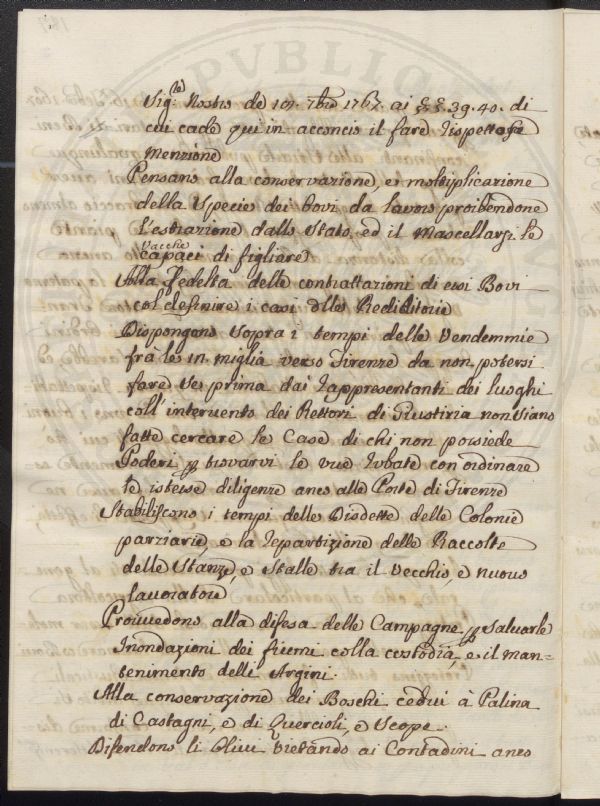 Sig.(re) Nostro de 10. 7bre 1767. ai §§. 39. 40. di
cui cade qui in acconcio il fare rispettosa
menzione
Pensano alla conservazione, e moltiplicazione
della Specie dei bovi da lavoro proibendone
l'estrazione dallo Stato, ed il Macellarsi le
vacche
capaci di figliare
Alla Fedeltà delle contrattazioni di essi Bovi
col definire i casi dlle Redibitorie
Dispongano sopra i tempi delle Vendemmie
frà le in miglia verso Firenze da non potersi
fare se prima dai rappresentanti dei luoghi
coll'intervento dei Rettori di Giustizia non siano
fatte cercare le Case di chi non possiede
Poderi p trovarvi le uve rubate con ordinare
le istesse diligenze anco alle Porte di Firenze
Stabiliscono i tempi delle Disdette delle Colonie
parziarie, e la repartizione delle Raccolte
delle Stanze, e Stalle tra il vecchio, e nuovo
lavoratore
Provvedono alla difesa delle Campagne p salvarle
Inondazioni dei fiumi colla custodia, e il man=
tenimento delli Argini.
Alla conservazione dei Boschi cedui à Palina
di Castagni, e di Quercioli, e Scope.
Difendono li Ulivi vietando ai Contadini anco